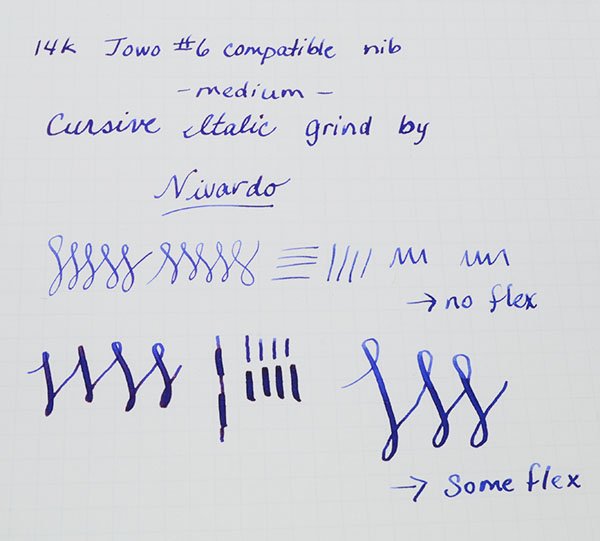 14k Jowo #6 compatible nib
- medium -
Cursive Italic grind by
Nivardo
→ no flex
→ Some flex